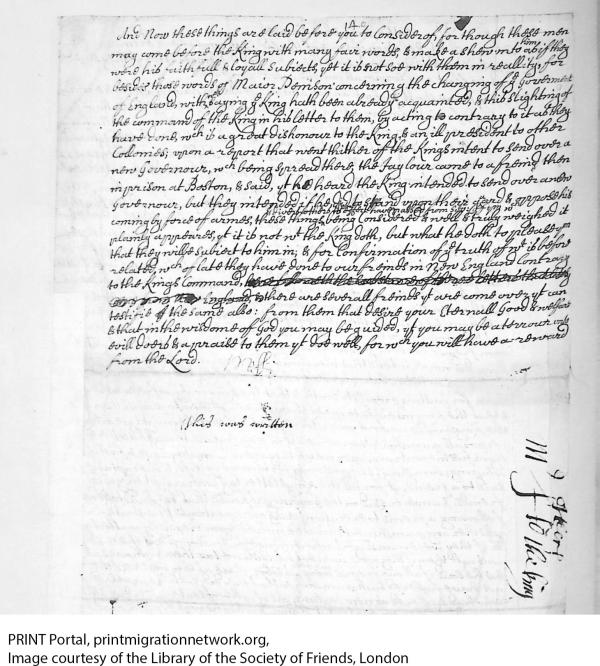 And Now these things are laid before you to Consider of, for though these men
may come before the King with many faire words, & make a shew unto him as if they
were his faithfull & loyall Subiects, yet it is not soe with them in reallity, for
besides those words of Maior Denison concerning the changing of ye Goverment
of England, with saying ye King hath been already acquainted, & this Slighting of
the command of the King in his letter to them, by acting so contrary to it as they
have done, wch is a great dishonour to the King, & an ill president to other
Colonies; upon a report that went thither of the Kings intent to send over a
new Governour, wch being spread there, the Jaylour came to a freind then
in prison at Boston, & said, yt he heard the King intended to send over a new
Governour, but they intended if he did to stand upon their Guard, & oppose his
coming by force of armes, these things being Considered & well & truly weighed it
plainly appeares, yt it is not wt the King doth, but what he doth to please ym
that they will be Subiect to him in; & for Confirmation of ye truth of wt is before
related, wch of late they have done to our freinds in New England Contrary
to the Kings Command, there are severall freinds yt are come over yt can
testifie of the same also; from them that desire your Eternall Good & welfare
& that in the wisdome of God you may be guided, yt you may be a terrour unto
evill doers & a praise to them yt doe well, for wch you will have a reward
from the Lord.
This was written
to the King
PRINT Portal, printmigrationnetwork.org,
Image courtesy of the Library of the Society of Friends, London